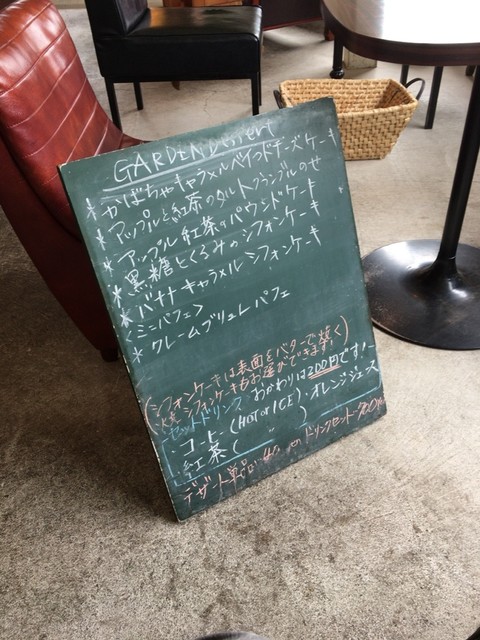 GARDEN Dessert
* かぼちゃキャラメルベイクドチーズケーキ
* アップルと紅茶のタルト クランブルのせ
* アップル紅茶パウンドケーキ
* 黒糖とくるみのシフォンケーキ
* バナナキャラメルシフォンケーキ
<ミニパフェ>
* クレームブリュレパフェ
(シフォンケーキは表面をバターで焼く
焼シフォンケーキもお選びできます!)
セットドリンク おかわりは200円です!
・コーヒー (HOT or ICE)・オレンジジュース
・紅茶 ( 〃 )
デザート単品 ドリンクセット